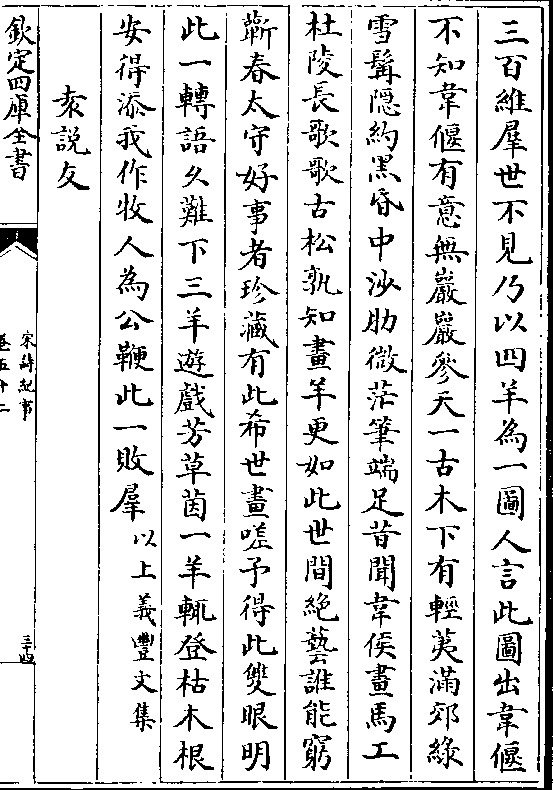 三百維羣世不見乃以四羊為一圖人言此圖出韋偃
不知韋偃有意無巖巖參天一古木下有輕荑滿郊緑
雪髯隠約黒昏中沙肋微茫筆端足昔聞韋侯畫馬工
杜陵長歌歌古松孰知畫羊更如此世間絶藝誰能窮
蘄春太守好事者珍藏有此希世畫嗟予得此雙眼明
此一轉語久難下三羊遊戲芳草茵一羊輒登枯木根
安得添我作牧人為公鞭此一敗羣以上義豐文集
袁説友
欽定四庫全書
宋詩紀事
卷五十二
三十四